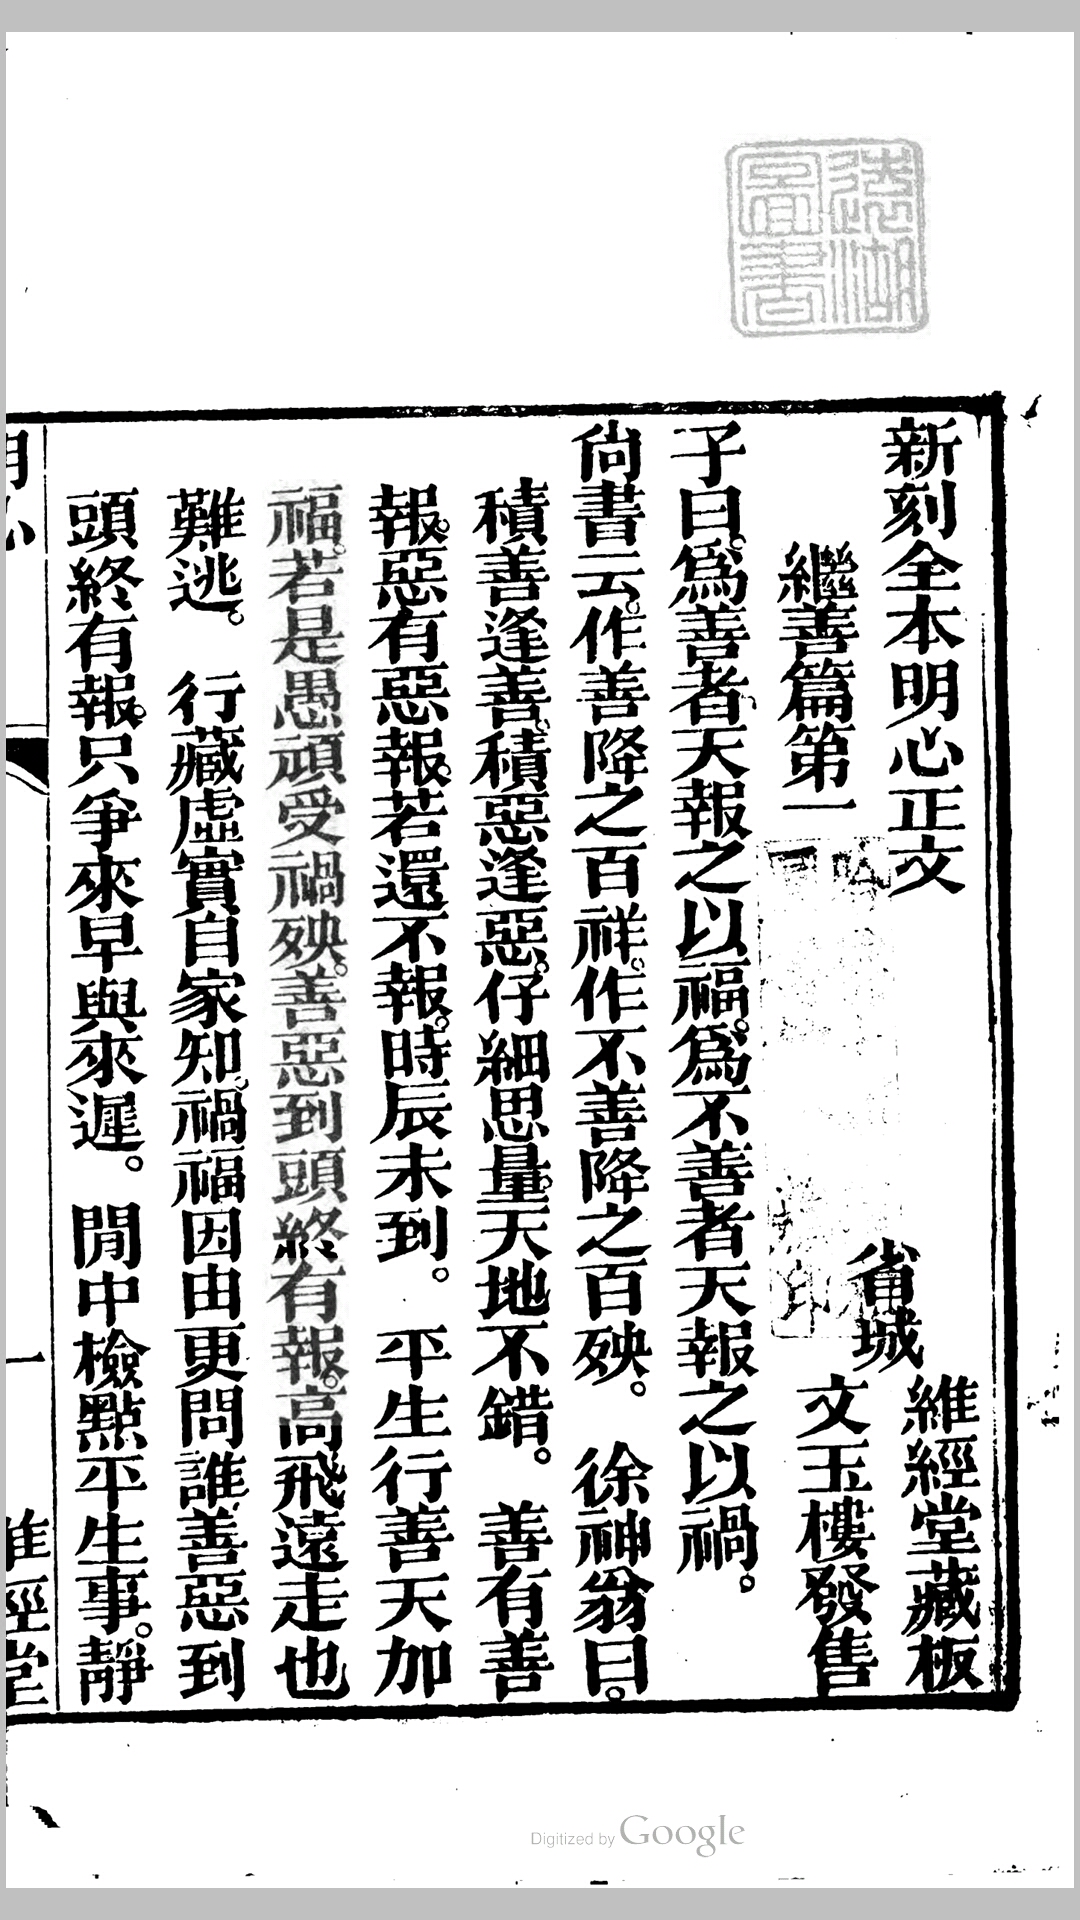 新刻全本明心正文
省城
維經堂藏板
文玉樓發售
繼善篇第一
子曰。爲善者、天報之以福。爲不善者天報之以禍。
尙書云。作善降之百祥。作不善降之百殃。 徐神翁曰。
積善逢善。積惡逢惡。仔細思量。天地不錯。 善有善
報。惡有惡報。若還不報。時辰未到。 平生行善天加
福。若是愚頑受禍殃。善惡到頭終有報。高飛遠走也
難逃。 行藏虛實自家知。禍福因由更問誰。善惡到
頭終有報。只爭來早與來遲。 閒中檢點平生事。靜
明心
一
維經堂
Digitized by Google